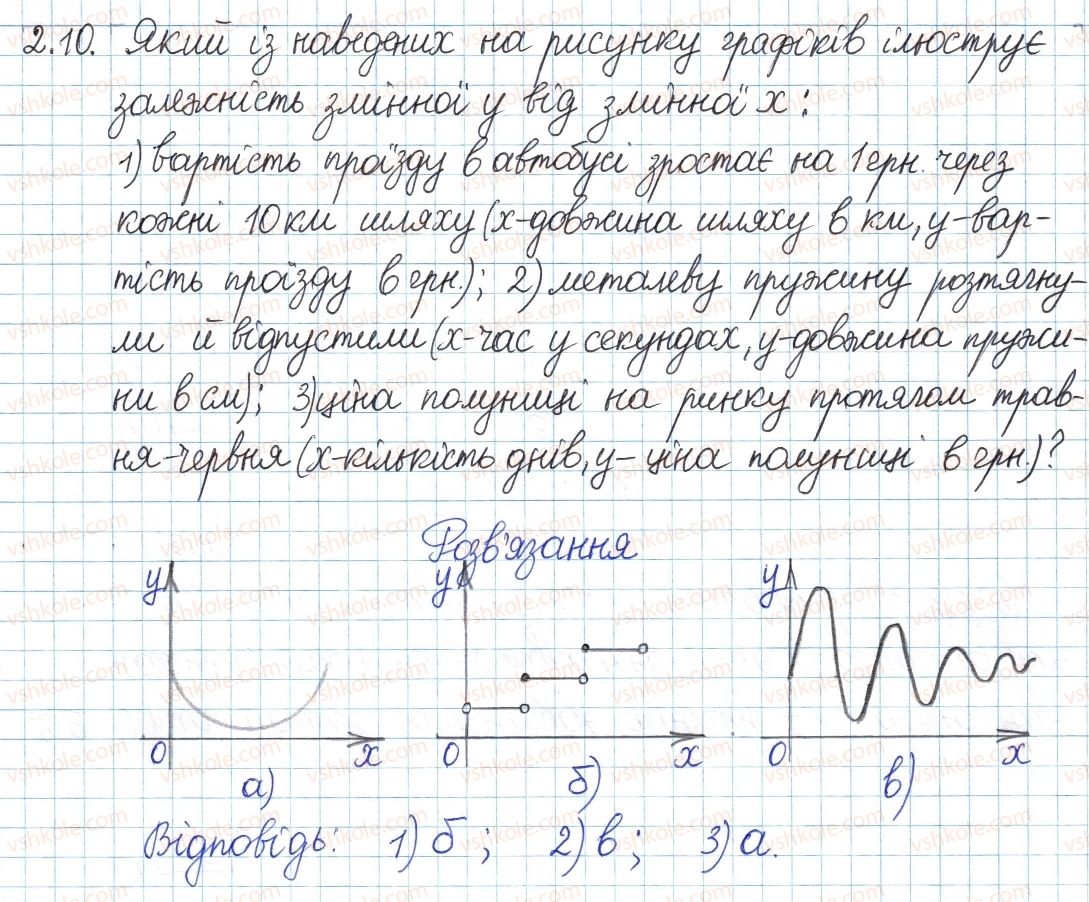 2.10. Який із наведених на рисунку графіків ілюструє
залежність змінної y від змінної x:
1) вартість проїзду в автобусі зростає на 1 грн. через
кожні 10 км шляху (x-довжина шляху в км, y-вар-
тість проїзду в грн.); 2) металеву пружину розтягну-
ли й відпустили (x-час у секундах, y-довжина пружи-
ни в см); 3) ціна полуниці на ринку протягом трав-
ня-червня (x-кількість днів, y-ціна полуниці в грн.)?
Розв'язання
y y y
0 x 0 x 0 x
а) б) в)
Відповідь: 1) б; 2) в; 3) а.
vshkole.com